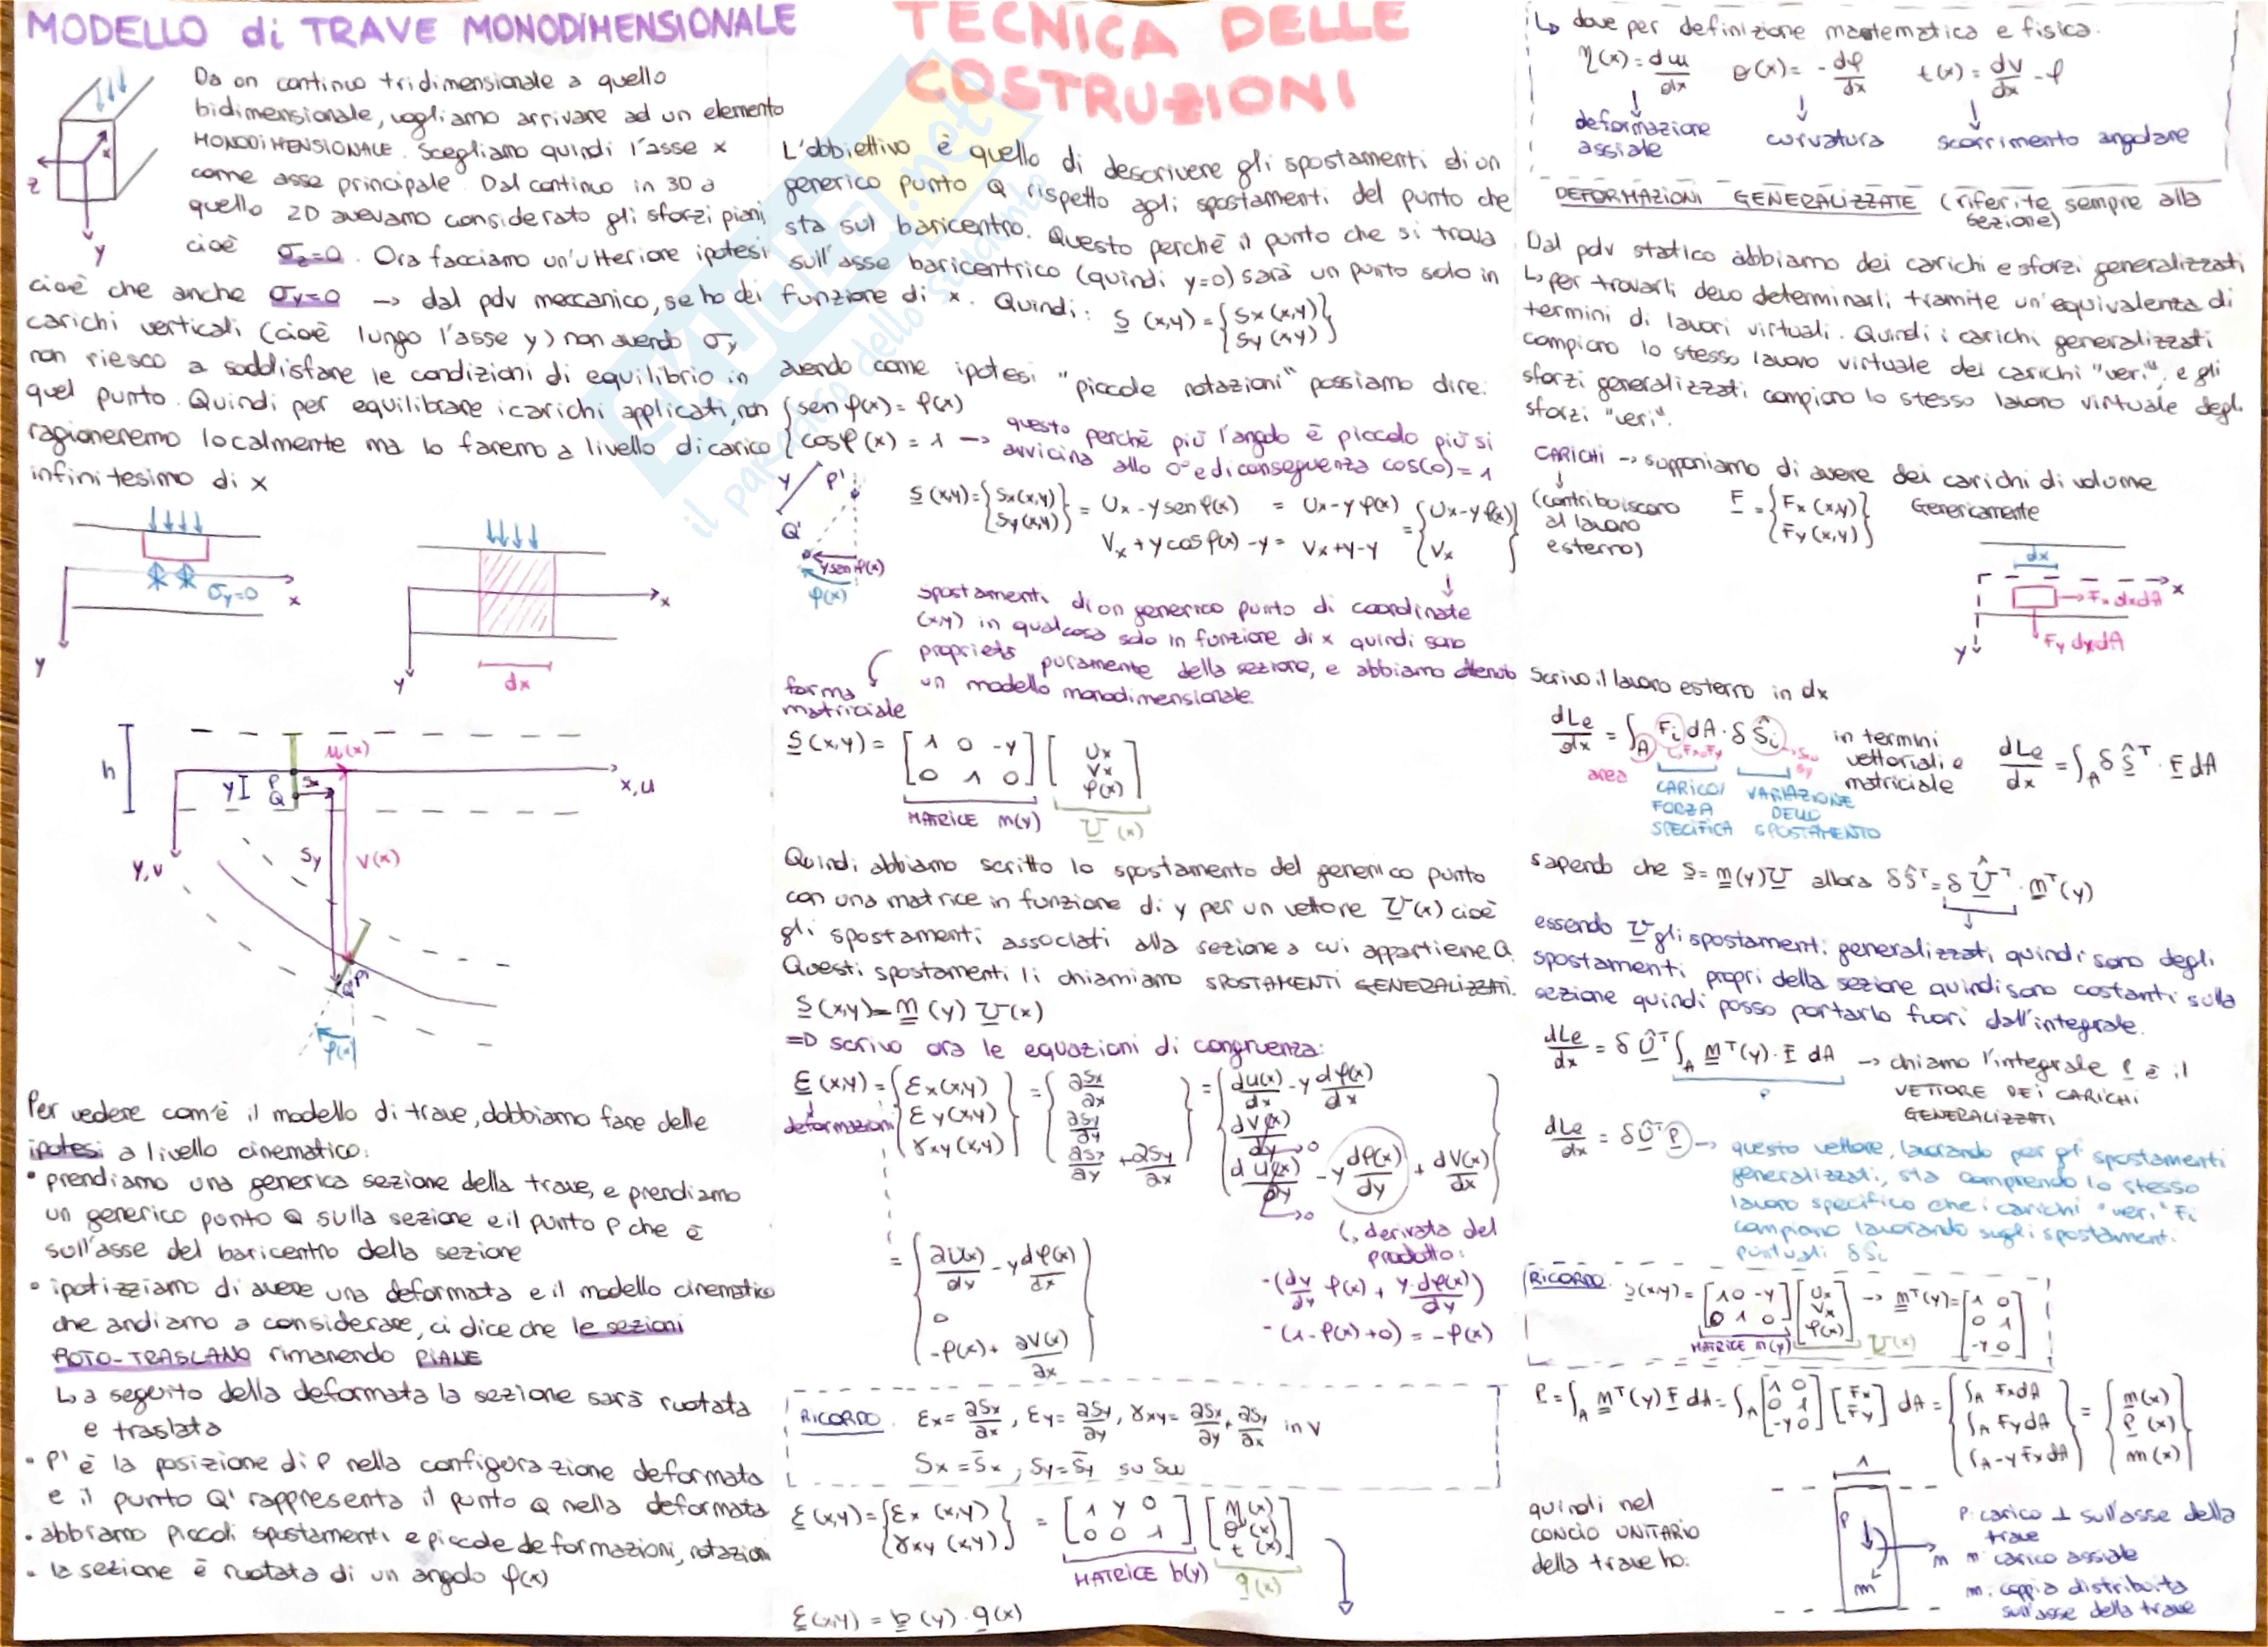 MODELLO di TRAVE MONODIMENSIONALE
Da un continuo tridimensionale a quello
bidimensionale, vogliamo arrivare ad un elemento
MONODIMENSIONALE. Scegliamo quindi l'asse x
come asse principale. Dal continuo in 3D a
quello 2D avevamo considerato gli sforzi piani
cioè σz=0. Ora facciamo un'ulteriore ipotesi
cioè che anche σy=0 → dal pdv meccanico, se ho dei
carichi verticali (cioè lungo l'asse y) non avendo σy
non riesco a soddisfare le condizioni di equilibrio in
quel punto. Quindi per equilibrare i carichi applicati, non
ragioneremo localmente ma lo faremo a livello di carico
infinitesimo di x
z
x
y
σy=0
x
y
x
y
dx
h
u(x)
yI
P
Q
Sx
x,u
y,v
Sy
v(x)
Q'
P'
φ(x)
Per vedere com'è il modello di trave, dobbiamo fare delle
ipotesi a livello cinematico:
• prendiamo una generica sezione della trave, e prendiamo
un generico punto Q sulla sezione e il punto P che è
sull'asse del baricentro della sezione
• ipotizziamo di avere una deformata e il modello cinematico
che andiamo a considerare, ci dice che le sezioni
ROTO-TRASLANO rimanendo PIANE
↳ a seguito della deformata la sezione sarà ruotata
e traslata
• P' è la posizione di P nella configurazione deformata
e il punto Q' rappresenta il punto Q nella deformata
• abbiamo piccoli spostamenti e piccole deformazioni, rotazioni
• la sezione è ruotata di un angolo φ(x)
TECNICA DELLE
COSTRUZIONI
L'obbiettivo è quello di descrivere gli spostamenti di un
generico punto Q rispetto agli spostamenti del punto che
sta sul baricentro. Questo perché il punto che si trova
sull'asse baricentrico (quindi y=0) sarà un punto solo in
funzione di x. Quindi: S (x,y) = {Sx (x,y)
Sy (x,y)}
avendo come ipotesi "piccole rotazioni" possiamo dire:
{sen φ(x) = φ(x)
cos φ(x) = 1 → questo perché più l'angolo è piccolo più si
avvicina allo 0° e di conseguenza cos(0) = 1
y
P'
Q'
y sen φ(x)
φ(x)
S (x,y) = {Sx(x,y) = Ux - y sen φ(x) = Ux - y φ(x) = {Ux - y φ(x)
Sy(x,y)} Vx + y cos φ(x) - y = Vx + y - y Vx}
spostamenti di un generico punto di coordinate
(x,y) in qualcosa solo in funzione di x quindi sono
proprietà puramente della sezione, e abbiamo ottenuto
un modello monodimensionale.
forma
matriciale
S (x,y) = [1 0 -y
0 1 0] [Ux
Vx
φ(x)]
MATRICE m(y) U (x)
Quindi abbiamo scritto lo spostamento del generico punto
con una matrice in funzione di y per un vettore U(x) cioè
gli spostamenti associati alla sezione a cui appartiene Q.
Questi spostamenti li chiamiamo SPOSTAMENTI GENERALIZZATI.
S (x,y) = m (y) U (x)
=D scrivo ora le equazioni di congruenza:
ε (x,y) = {εx (x,y) = {∂Sx/∂x = {du(x)/dx - y dφ(x)/dx
deformazioni εy (x,y) ∂Sy/∂y dv(x)/dy → 0
γxy (x,y)} ∂Sx/∂y + ∂Sy/∂x} du(x)/dy → 0 - y dφ(x)/dy + dV(x)/dx}
↳ derivata del
prodotto:
= {∂u(x)/dx - y dφ(x)/dx
0
-φ(x) + ∂V(x)/∂x}
-(dy/dy φ(x) + y · dφ(x)/dy)
-(1 · φ(x) + 0) = -φ(x)
RICORDO. εx = ∂Sx/∂x, εy = ∂Sy/∂y, γxy = ∂Sx/∂y + ∂Sy/∂x in V
Sx = S̄x, Sy = S̄y su Su
ε (x,y) = {εx (x,y)
γxy (x,y)} = [1 y 0
0 0 1] [η(x)
θ(x)
t(x)]
MATRICE b(y) q(x)
ε (x,y) = b (y) · q(x)
↳ dove per definizione matematica e fisica:
η(x) = du/dx θ(x) = - dφ/dx t(x) = dv/dx - φ
deformazione
assiale
curvatura
scorrimento angolare
DEFORMAZIONI GENERALIZZATE (riferite sempre alla
sezione)
Dal pdv statico abbiamo dei carichi e sforzi generalizzati
↳ per trovarli devo determinarli tramite un'equivalenza di
termini di lavori virtuali. Quindi i carichi generalizzati
compiono lo stesso lavoro virtuale dei carichi "veri", e gli
sforzi generalizzati, compiono lo stesso lavoro virtuale degli
sforzi "veri".
CARICHI → supponiamo di avere dei carichi di volume
(contribuiscono
al lavoro
esterno)
F = {Fx (x,y)
Fy (x,y)} Genericamente
dx
x
Fx dxdA
Fy dxdA
y
Scrivo il lavoro esterno in dx
dLe/dx = ∫A Fi dA · δŜi
area
Fx, Fy
Sx
Sy
CARICO/
FORZA
SPECIFICA
VARIAZIONE
DELLO
SPOSTAMENTO
in termini
vettoriali e
matriciale
dLe/dx = ∫A δŜᵀ · F dA
sapendo che S = m(y)U allora δŜᵀ = δÛᵀ · mᵀ(y)
essendo U gli spostamenti generalizzati, quindi sono degli
spostamenti propri della sezione quindi sono costanti sulla
sezione quindi posso portarlo fuori dall'integrale.
dLe/dx = δÛᵀ ∫A mᵀ(y) · F dA → chiamo l'integrale P è il
P
VETTORE DEI CARICHI
GENERALIZZATI
dLe/dx = δÛᵀ P → questo vettore, lavorando per gli spostamenti
generalizzati, sta compiendo lo stesso
lavoro specifico che i carichi "veri" Fi
compiono lavorando sugli spostamenti
puntuali δSi
RICORDO. S(x,y) = [1 0 -y
0 1 0] [Ux
Vx
φ(x)] → mᵀ(y) = [1 0
0 1
-y 0]
MATRICE m(y) U(x)
P = ∫A mᵀ(y) F dA = ∫A [1 0
0 1
-y 0] [Fx
Fy] dA = {∫A Fx dA
∫A Fy dA
∫A -y Fx dA} = {m(x)
P (x)
m(x)}
quindi nel
CONCIO UNITARIO
della trave ho:
1
P
m
m
P: carico ⊥ sull'asse della
trave
m: carico assiale
m: coppia distribuita
sull'asse della trave
SKUOLA.net
il paradiso dello studente